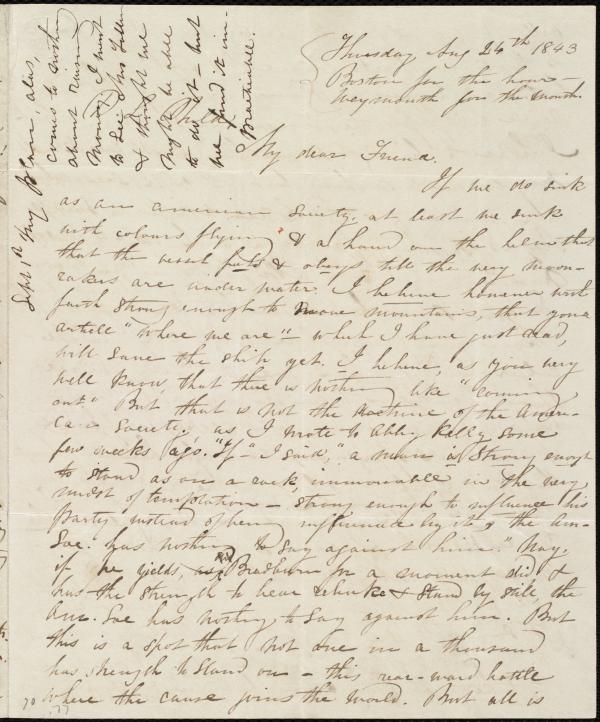 Thursday Aug 24th 1843
Boston for the hour —
Weymouth for the month.
My dear Friend.
If we do sink
as an american Society, at least we sink
with colours flying & a hand on the helm that
that the vessel feels & obeys till the very moon-
rakers are under water. I believe however with
faith strong enough to move mountains, that your
article "Where we are" — which I have just read,
will save the ship yet. I believe, as you very
well know, that there is nothing like "coming
out." But that is not the doctrine of the Ameri-
can Society. as I wrote to Abby Kelly some
few weeks ago. "If" "I said," a man is strong enough
to stand as on a rock, immoveable in the very
midst of temptation — strong enough to influence his
Party instead of being influenced by it, the Am-
Soc. has nothing to say against him." Nay,
if he yields, as Bradburn for a moment did &
has the strength to hear rebuke & stand by still, the
Am. Soc has nothing to say against him. But
this is a spot that not one in a thousand
has strength to stand on — this rear-ward battle
where the cause joins the world. But all is
Sept 1st My plan, alas,
comes to nothing
about
Money. I went
to see Mrs
& thought we
might be able
to do it — but
we find it im-
practicable.